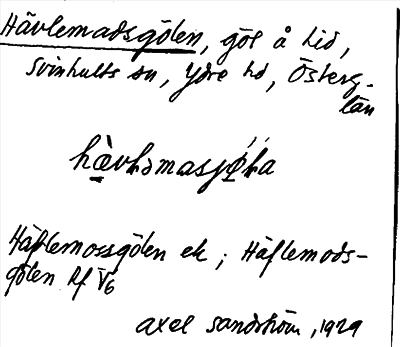 Hävlemadsgölen, göl å hid,
Svinhults sn, Ydre hd, Österg.
län
hàvləmasjǿla
Häflemossgölen ek; Häflemods-
gölen Rf V6
Axel Sandström, 1929